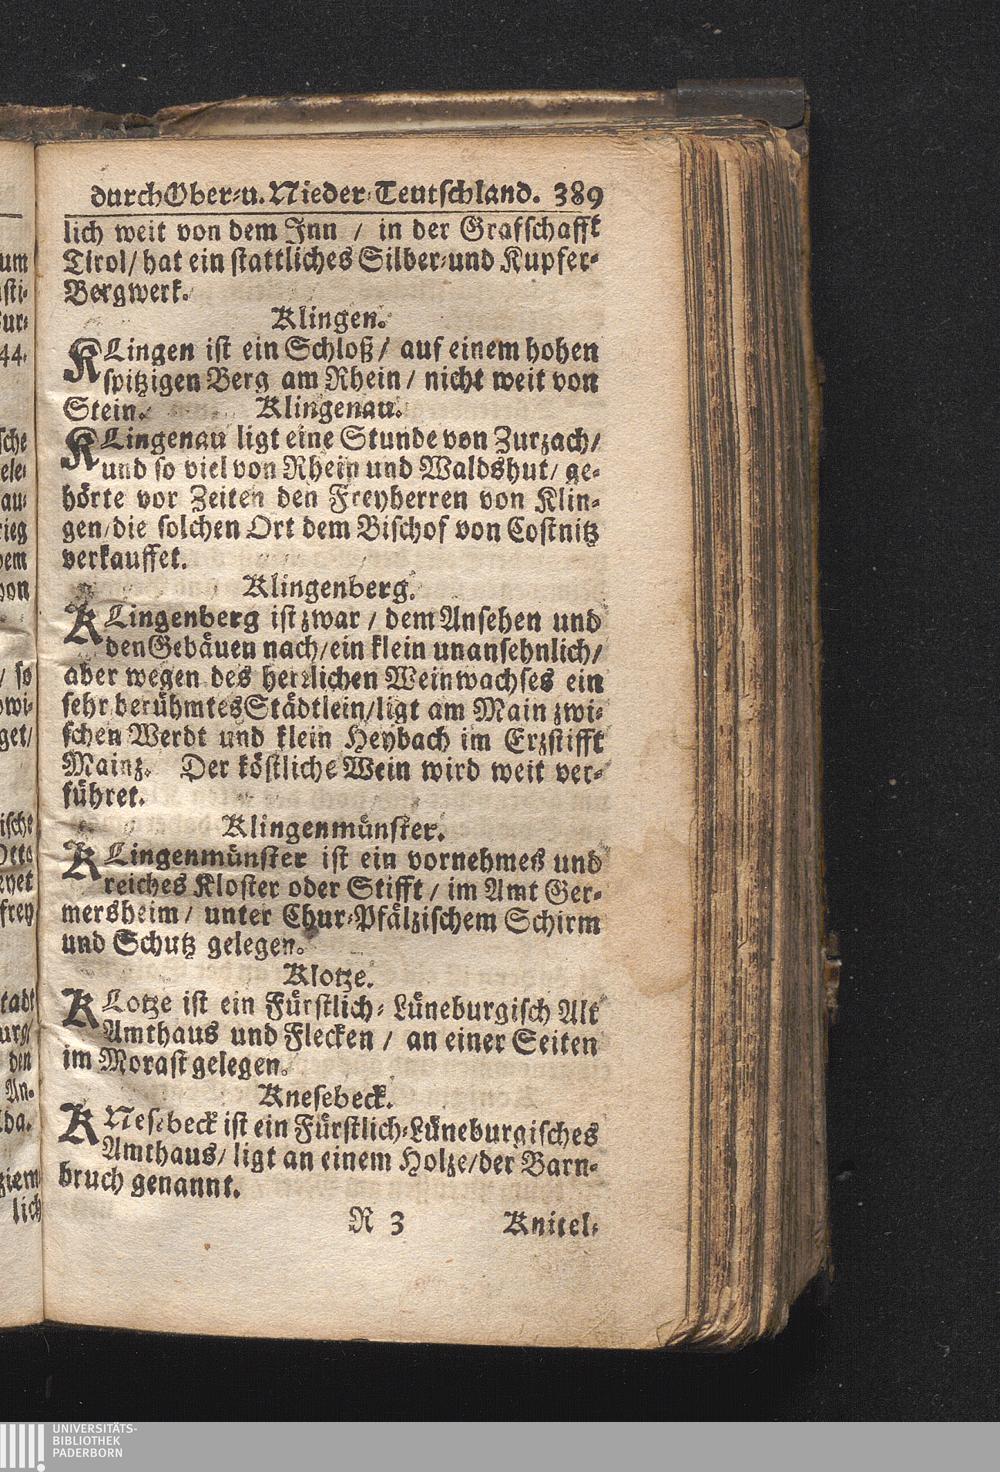 durch Ober-u. Nieder-Teutschland. 389
lich weit von dem Inn / in der Grafschafft
Tirol/ hat ein stattliches Silber-und Kupfer-
Bergwerk.
Klingen.
KLingen ist ein Schloß/ auf einem hohen
spitzigen Berg am Rhein / nicht weit von
Stein. Klingenau.
KLingenau ligt eine Stunde von Zurzach/
und so viel von Rhein und Waldshut/ ge-
hörte vor Zeiten den Freyherren von Klin-
gen/die solchen Ort dem Bischof von Costnitz
verkauffet.
Klingenberg.
KLingenberg ist zwar / dem Ansehen und
den Gebäuen nach/ein klein unansehnlich/
aber wegen des herrlichen Weinwachses ein
sehr berühmtes Städtlein/ligt am Main zwi-
schen Werdt und klein Heybach im Erzstifft
Mainz. Der köstliche Wein wird weit ver-
führet.
Klingenmünster.
KLingenmünster ist ein vornehmes und
reiches Kloster oder Stifft / im Amt Ger-
mersheim / unter Chur-Pfälzischem Schirm
und Schutz gelegen.
Klotze.
KLotze ist ein Fürstlich-Lüneburgisch Alt
Amthaus und Flecken / an einer Seiten
im Morast gelegen.
Knesebeck.
KNesebeck ist ein Fürstlich-Lüneburgisches
Amthaus/ ligt an einem Holze/der Barn-
bruch genannt.
R 3 Knitel-
UNIVERSITÄTS-
BIBLIOTHEK
PADERBORN